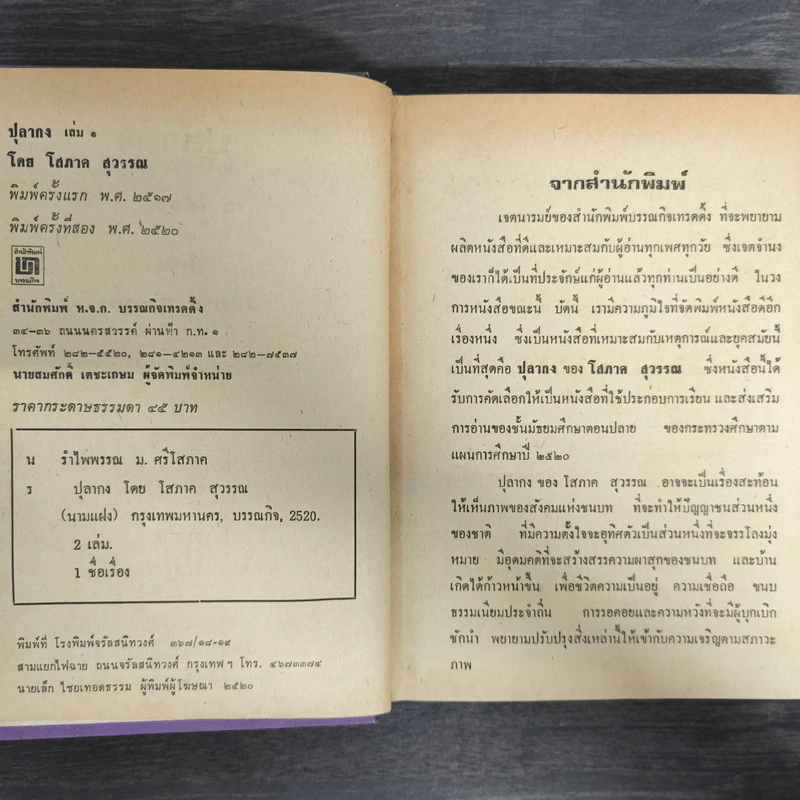 ปุลากง เล่ม ๑
โดย โสภาค สุวรรณ
พิมพ์ครั้งแรก พ.ศ. ๒๕๑๗
พิมพ์ครั้งที่สอง พ.ศ. ๒๕๒๐
สำนักพิมพ์
บรรณกิจ
สำนักพิมพ์ ห.จ.ก. บรรณกิจเทรดดิ้ง
๓๔-๓๖ ถนนนครสวรรค์ ผ่านฟ้า ก.ท. ๑
โทรศัพท์ ๒๘๒-๕๕๒๐, ๒๘๑-๔๒๑๓ และ ๒๘๒-๗๕๓๗
นายสมศักดิ์ เตชะเกษม ผู้จัดพิมพ์จำหน่าย
ราคากระดาษธรรมดา ๔๕ บาท
น รำไพพรรณ ม. ศรีโสภาค
ร ปุลากง โดย โสภาค สุวรรณ
(นามแฝง) กรุงเทพมหานคร, บรรณกิจ, 2520.
2 เล่ม.
1 ชื่อเรื่อง
พิมพ์ที่ โรงพิมพ์จรัลสนิทวงศ์ ๓๖๗/๑๘-๑๙
สามแยกไฟฉาย ถนนจรัลสนิทวงศ์ กรุงเทพฯ โทร. ๔๖๗๓๓๗๔
นายเล็ก ไชยเทอดธรรม ผู้พิมพ์ผู้โฆษณา ๒๕๒๐
จากสำนักพิมพ์
เจตนารมย์ของสำนักพิมพ์บรรณกิจเทรดดิ้ง ที่จะพยายาม
ผลิตหนังสือที่ดีและเหมาะสมกับผู้อ่านทุกเพศทุกวัย ซึ่งเจตจำนง
ของเราก็ได้เป็นที่ประจักษ์แก่ผู้อ่านแล้วทุกท่านเป็นอย่างดี ในวง
การหนังสือขณะนี้ บัดนี้ เรามีความภูมิใจที่จัดพิมพ์หนังสือดีอีก
เรื่องหนึ่ง ซึ่งเป็นหนังสือที่เหมาะสมกับเหตุการณ์และยุคสมัยนี้
เป็นที่สุดคือ ปุลากง ของ โสภาค สุวรรณ ซึ่งหนังสือนี้ได้
รับการคัดเลือกให้เป็นหนังสือที่ใช้ประกอบการเรียน และส่งเสริม
การอ่านของชั้นมัธยมศึกษาตอนปลาย ของกระทรวงศึกษาตาม
แผนการศึกษาปี ๒๕๒๐
ปุลากง ของ โสภาค สุวรรณ อาจจะเป็นเรื่องสะท้อน
ให้เห็นภาพของสังคมแห่งชนบท ที่จะทำให้ปัญญาชนส่วนหนึ่ง
ของชาติ ที่มีความตั้งใจจะอุทิศตัวเป็นส่วนหนึ่งที่จะจรรโลงมุ่ง
หมาย มีอุดมคติที่จะสร้างสรรความผาสุกของชนบท และบ้าน
เกิดได้ก้าวหน้าขึ้น เพื่อชีวิตความเป็นอยู่ ความเชื่อถือ ขนบ
ธรรมเนียมประจำถิ่น การรอคอยและความหวังที่จะมีผู้บุกเบิก
ชักนำ พยายามปรับปรุงสิ่งเหล่านี้ให้เข้ากับความเจริญตามสภาวะ
ภาพ